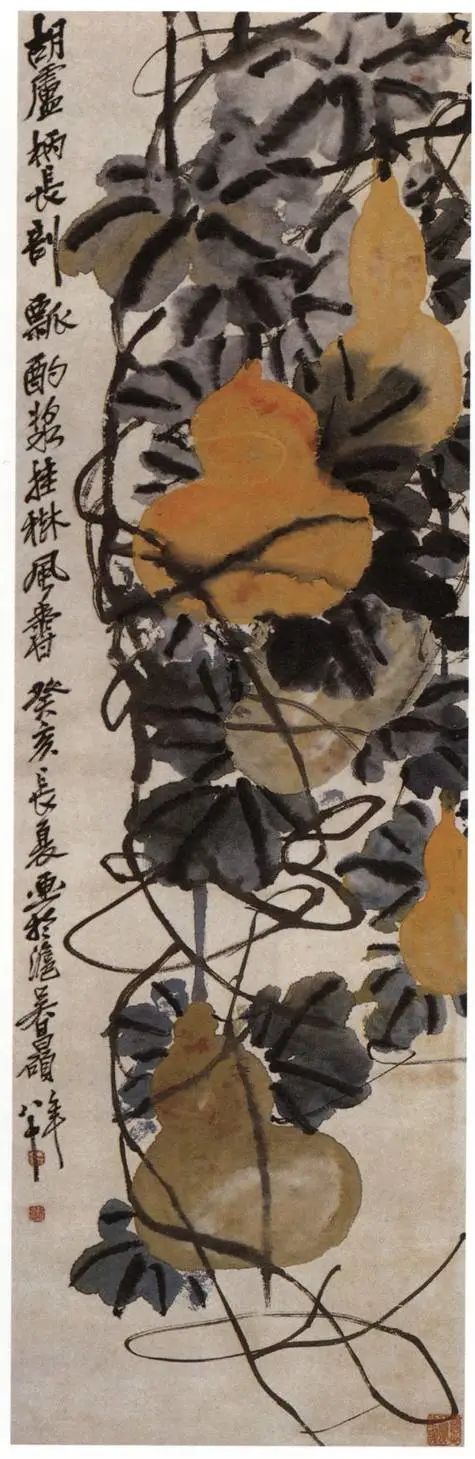 胡盧柄長剖瓢酌漿挂樹風香癸亥長夏画於滬吴昌碩年八十